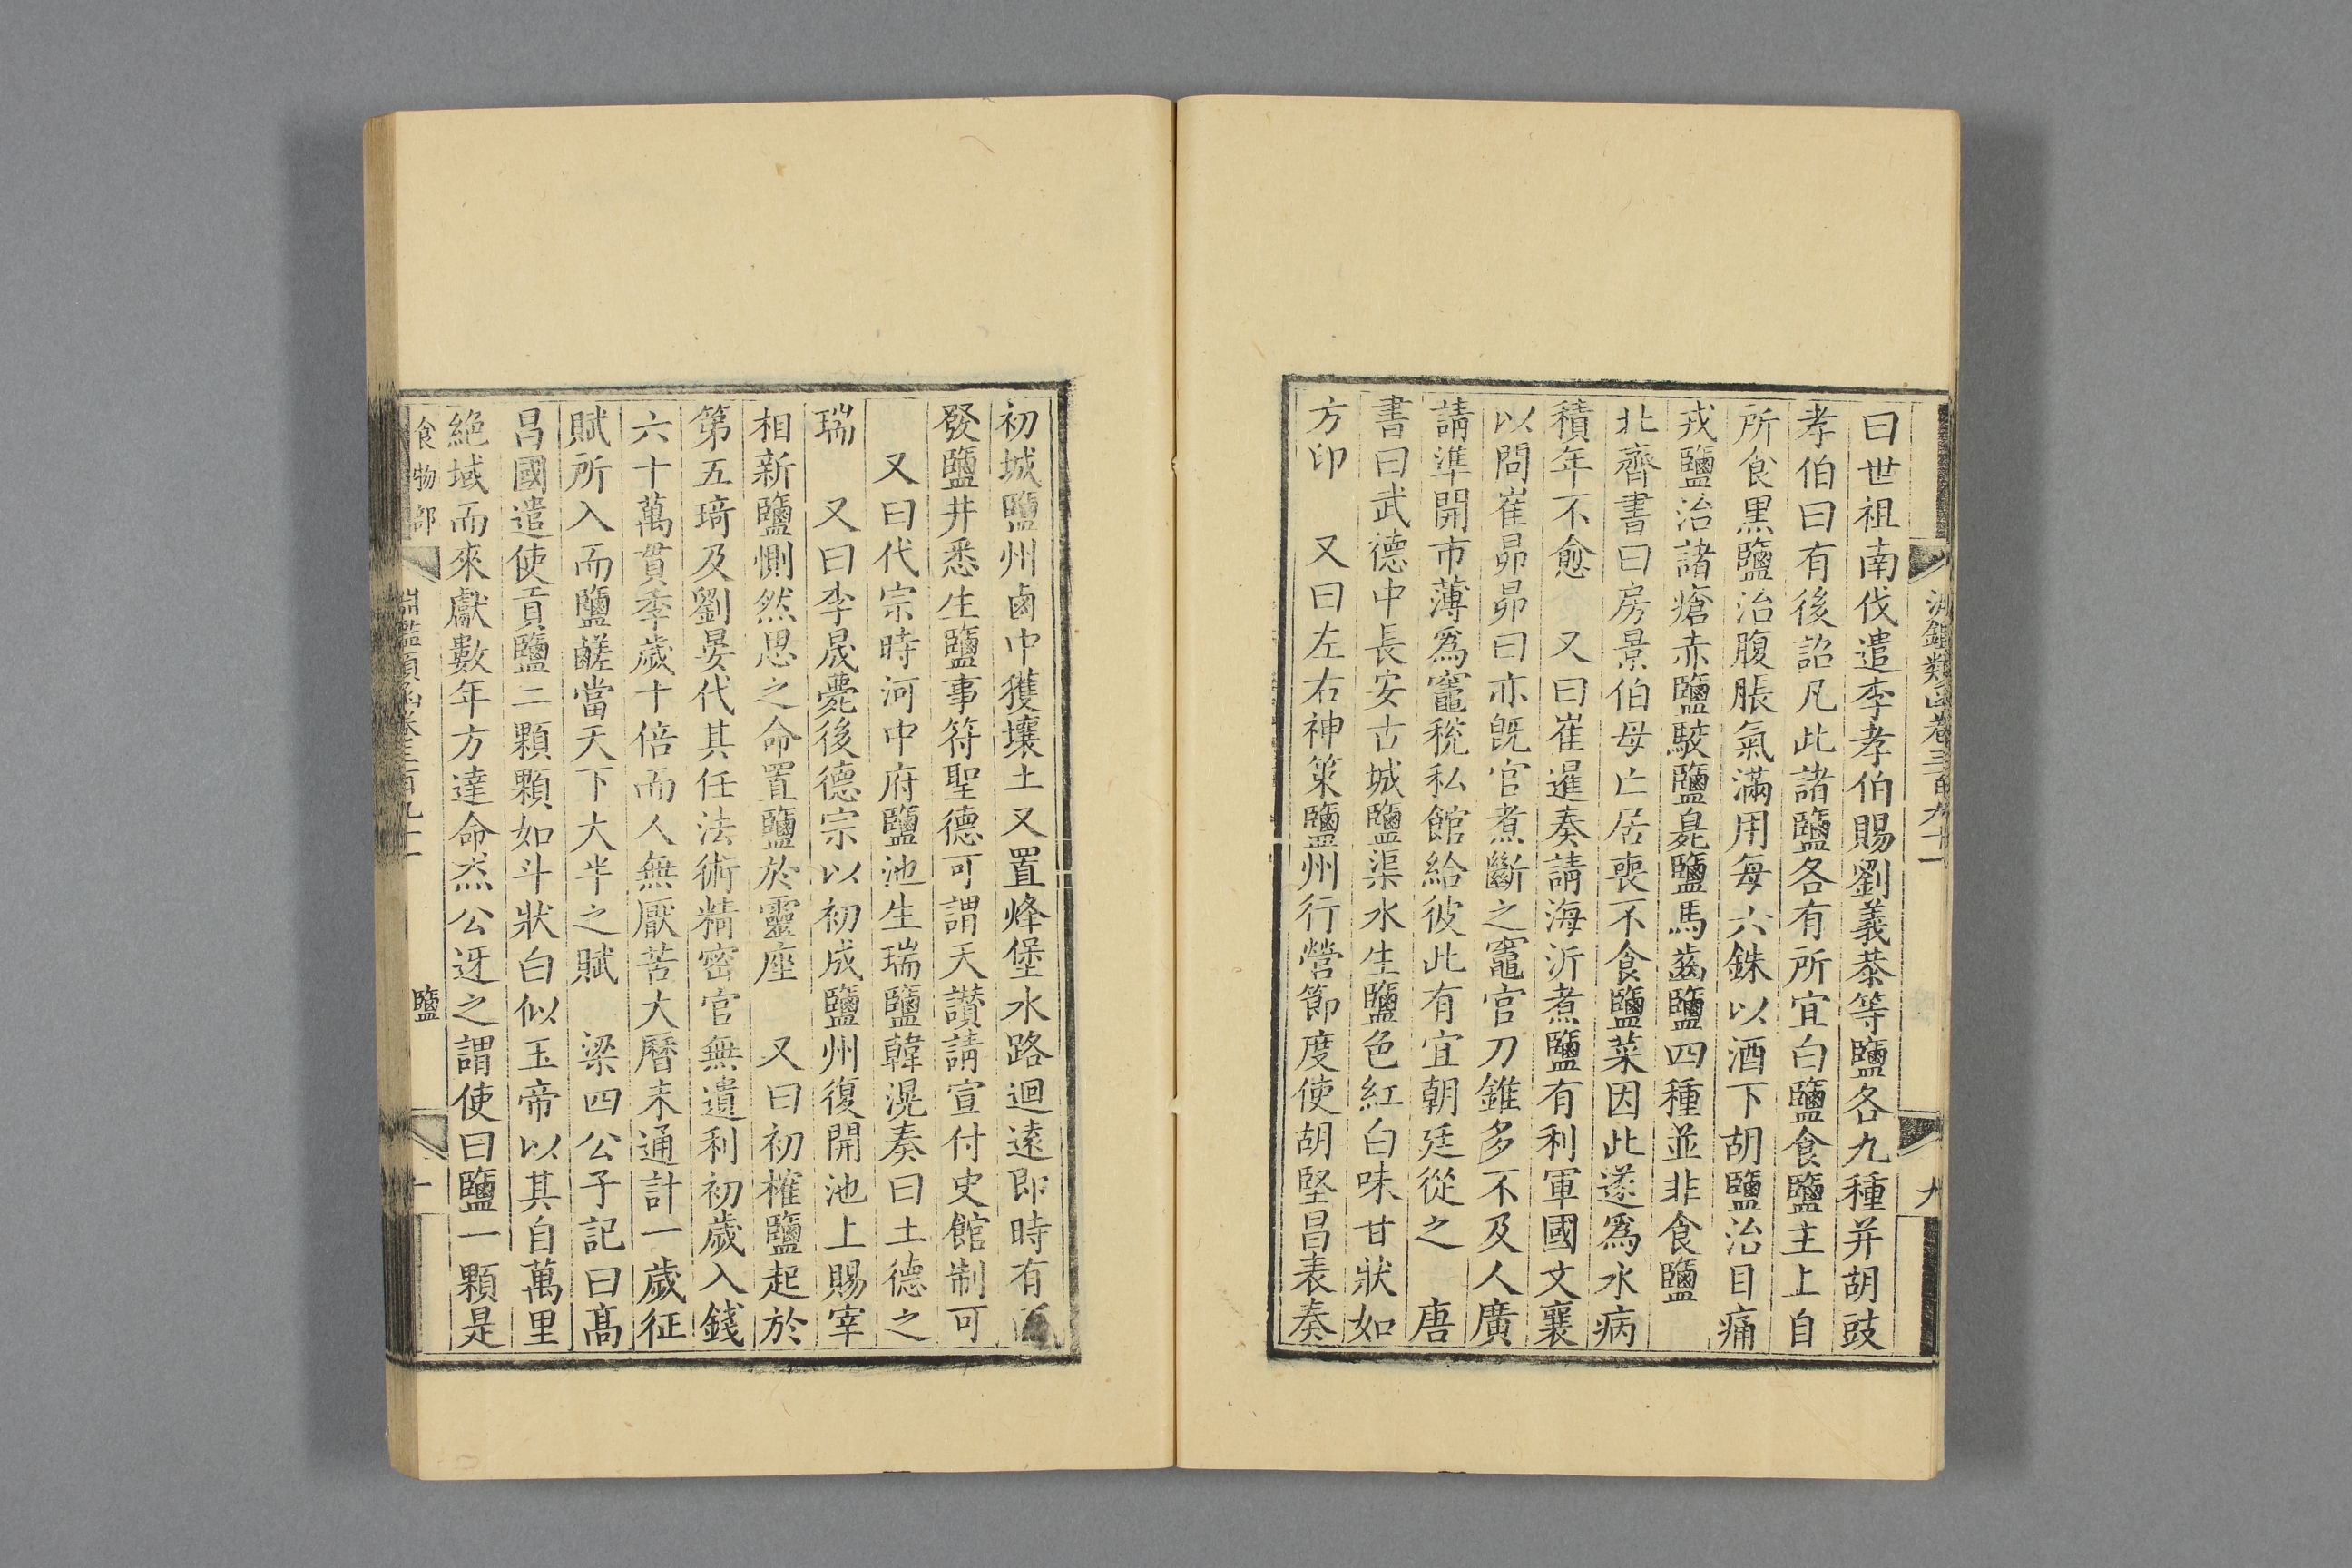 淵鑑類函卷三百九十一
九
曰世祖南伐遣李孝伯賜劉義恭等鹽各九種并胡豉
孝伯曰有後詔凡此諸鹽各有所宜白鹽食鹽主上自
所食黑鹽治腹脹氣滿用每六銖以酒下胡鹽治目痛
戎鹽治諸瘡赤鹽駮鹽臰鹽馬齒鹽四種並非食鹽
北齊書曰房景伯母亡居喪不食鹽菜因此遂爲水病
積年不愈　又曰崔暹奏請海沂煮鹽有利軍國文襄
以問崔昴昴曰亦旣官煮斷之竈官刀錐多不及人廣
請準開市薄爲竈稅私館給彼此有宜朝廷從之　唐
書曰武德中長安古城鹽渠水生鹽色紅白味甘狀如
方印　又曰左右神策鹽州行營節度使胡堅昌表奏
初城鹽州鹵中獲壤土又置烽堡水路迴遠即時有
發鹽井悉生鹽事符聖德可謂天讚請宣付史館制可
又曰代宗時河中府鹽池生瑞鹽韓滉奏曰土德之
瑞　又曰李晟薨後德宗以初成鹽州復開池上賜宰
相新鹽惻然思之命置鹽於靈座　又曰初榷鹽起於
第五琦及劉晏代其任法術精密官無遺利初歲入錢
六十萬貫季歲十倍而人無厭苦大曆末通計一歲征
賦所入而鹽鹺當天下大半之賦　梁四公子記曰髙
昌國遣使貢鹽二顆顆如斗狀白似玉帝以其自萬里
絶域而來獻數年方達命烝公迓之謂使曰鹽一顆是
食物部
淵鑑類函卷三百九十一
鹽